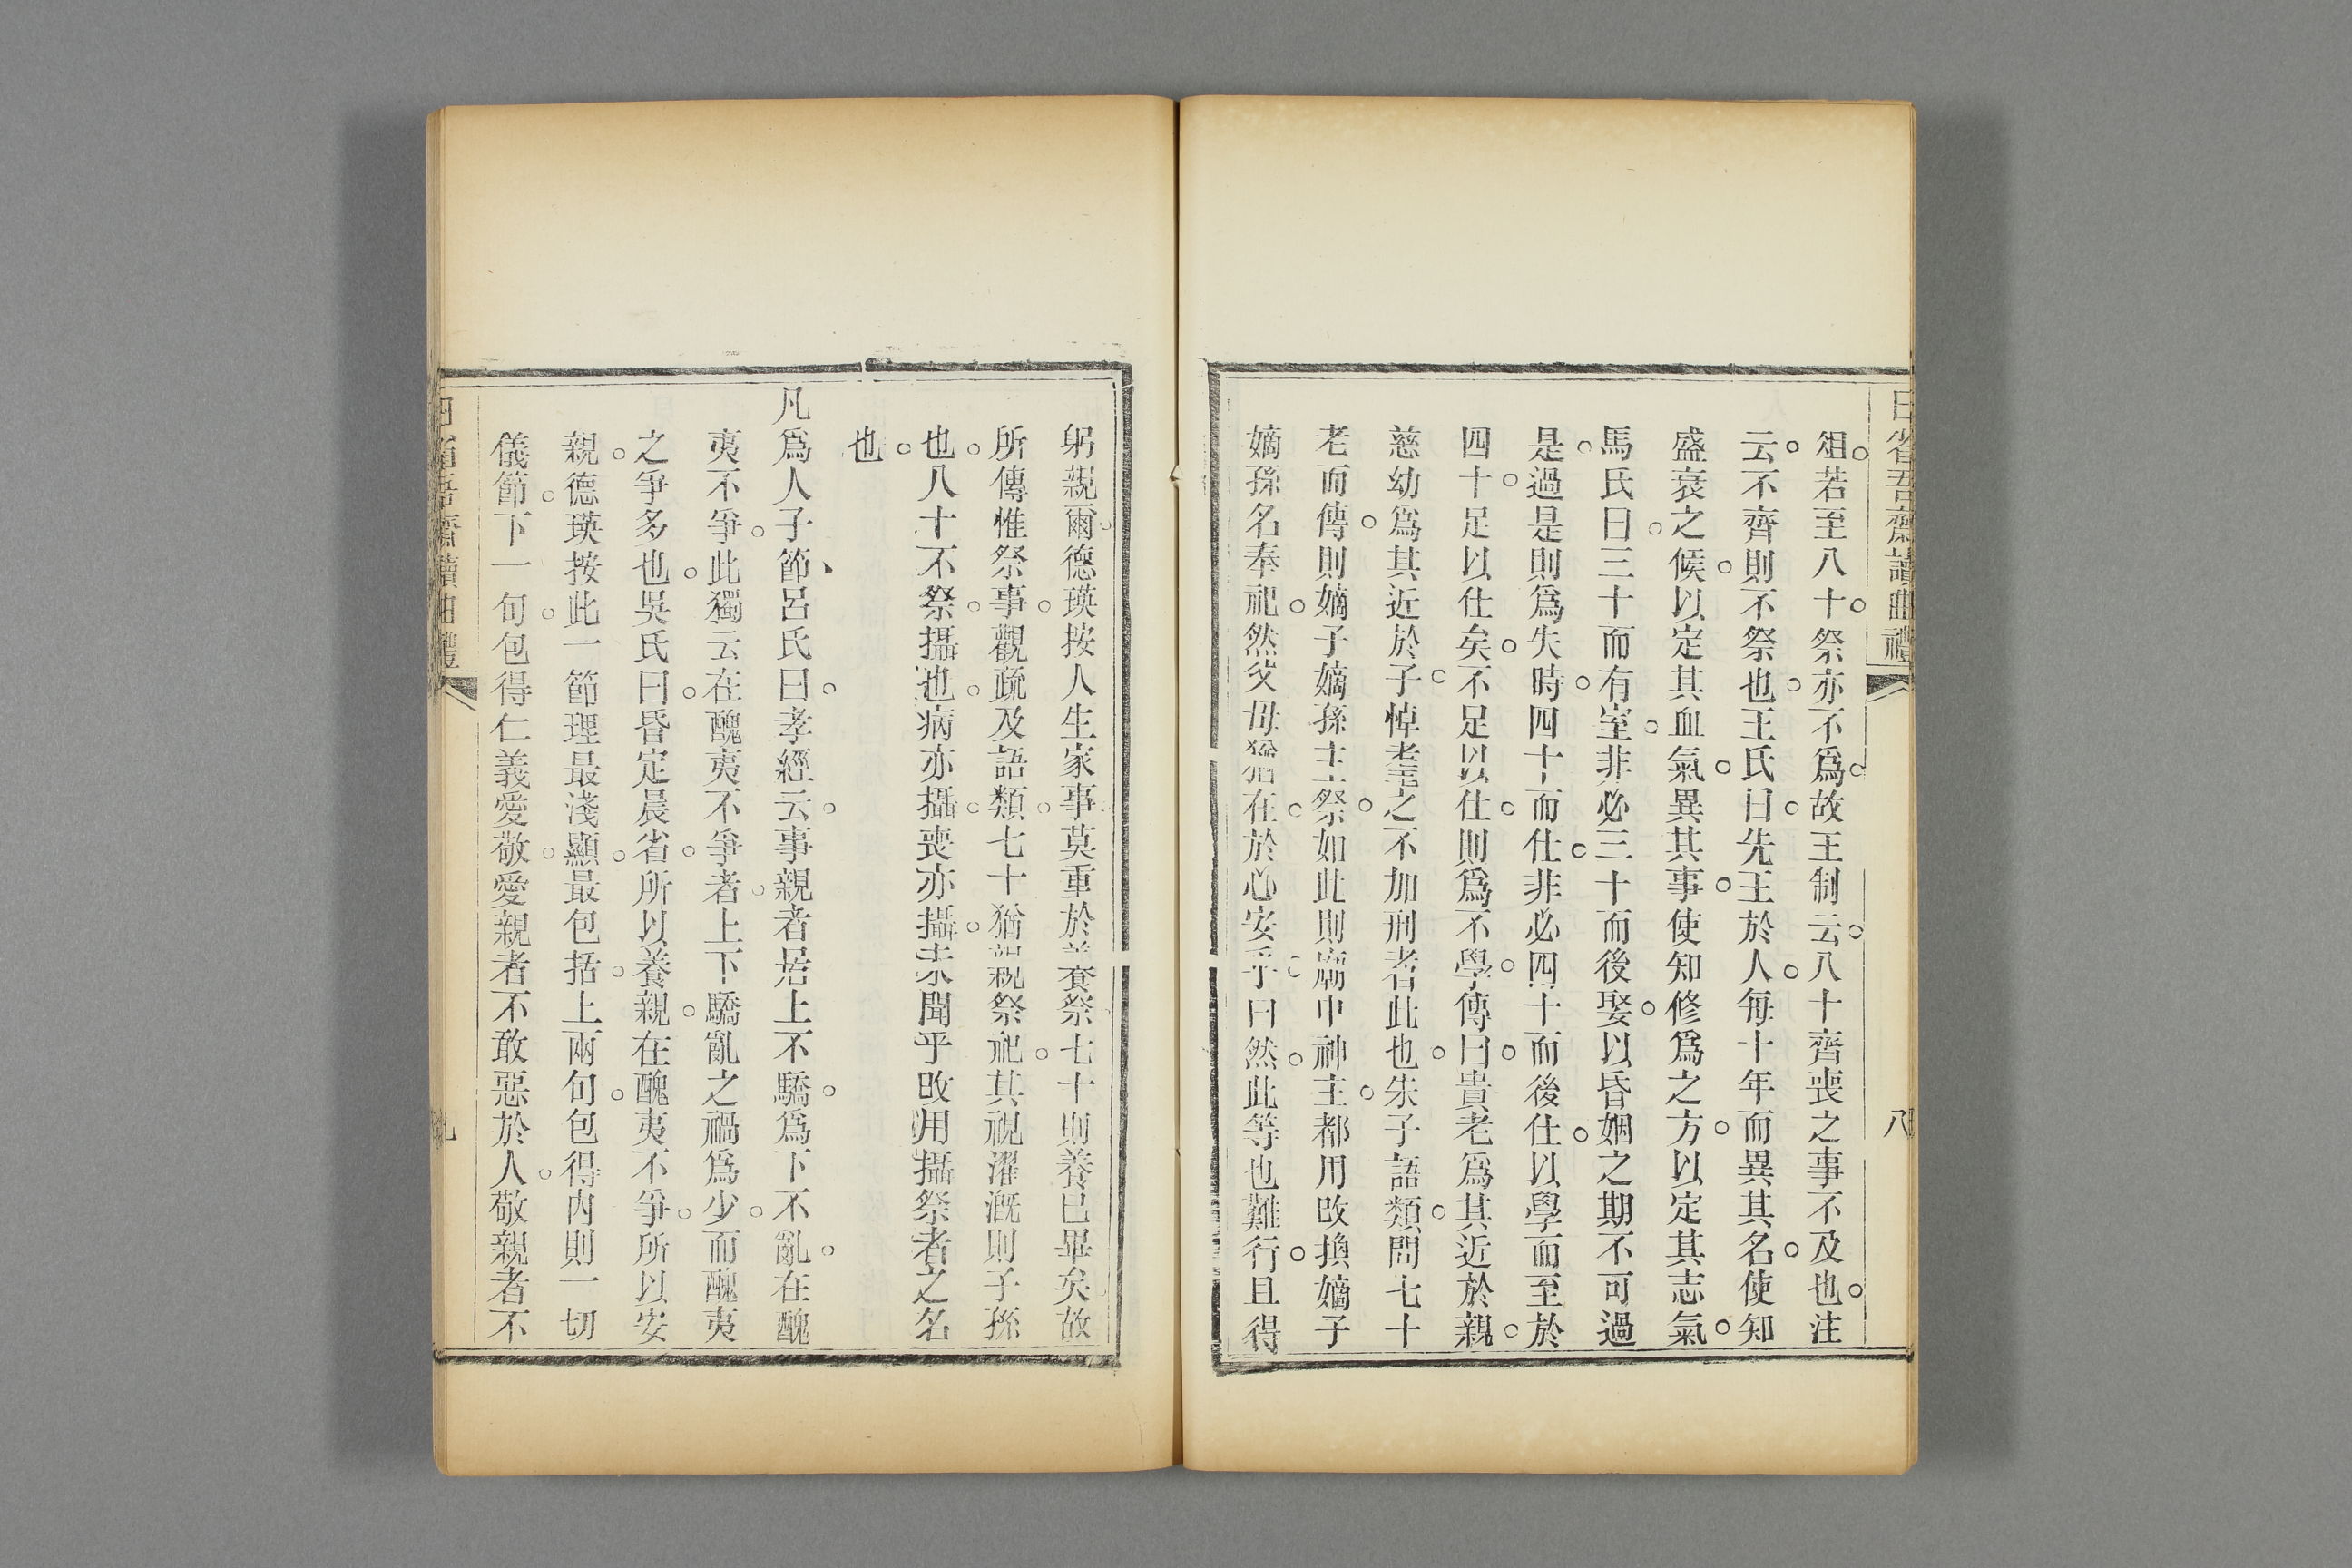 日省吾齋讀曲禮
八
俎若至八十祭亦不爲故王制云八十齊喪之事不及也注
云不齊則不祭也王氏曰先王於人每十年而異其名使知
盛衰之候以定其血氣異其事使知修爲之方以定其志氣
馬氏曰三十而有室非必三十而後娶以昏姻之期不可過
是過是則爲失時四十而仕非必四十而後仕以學而至於
四十足以仕矣不足以仕則爲不學傳曰貴老爲其近於親
慈幼爲其近於子悼耄之不加刑者此也朱子語類問七十
老而傳則嫡子嫡孫主祭如此則廟中神主都用改換嫡子
嫡孫名奉祀然父母猶在於心安乎曰然此等也難行且得
躬親爾德瑛按人生家事莫重於養祭七十則養已畢矣故
所傳惟祭事觀疏及語類七十猶親祭祀其視濯溉則子孫
也八十不祭攝也病亦攝喪亦攝未聞乎改用攝祭者之名
也
凡爲人子節呂氏曰孝經云事親者居上不驕爲下不亂在醜
夷不爭此獨云在醜夷不爭者上下驕亂之禍爲少而醜夷
之爭多也吳氏曰昏定晨省所以養親在醜夷不爭所以安
親德瑛按此一節理最淺顯最包括上兩句包得內則一切
儀節下一句包得仁義愛敬愛親者不敢惡於人敬親者不
日省吾齋讀曲禮
九